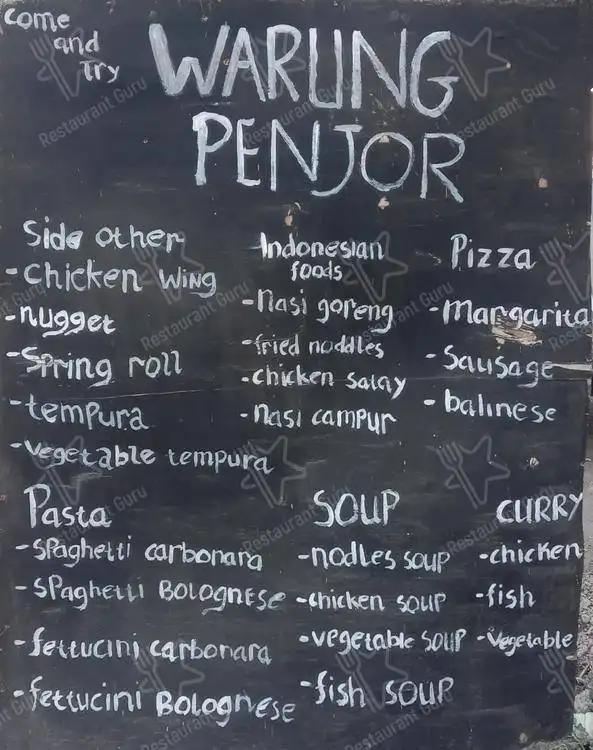 come
and
Try
WARUNG
PENJOR
Side other
-chicken wing
-nugget
-Spring roll
-tempura
-vegetable tempura
Indonesian
foods
-Nasi goreng
-fried noddles
-chicken satay
-Nasi campur
Pizza
-Margarita
-Sausage
-balinese
Pasta
-SPaghetti carbonara
-SPaghetti BOLOGNESE
-fettucini carbonara
-fettucini Bolognese
SOUP
-nodles soup
-chicken soup
-vegetable soup
-fish soup
CURRY
-chicken
-fish
-vegetable
Restaurant Guru